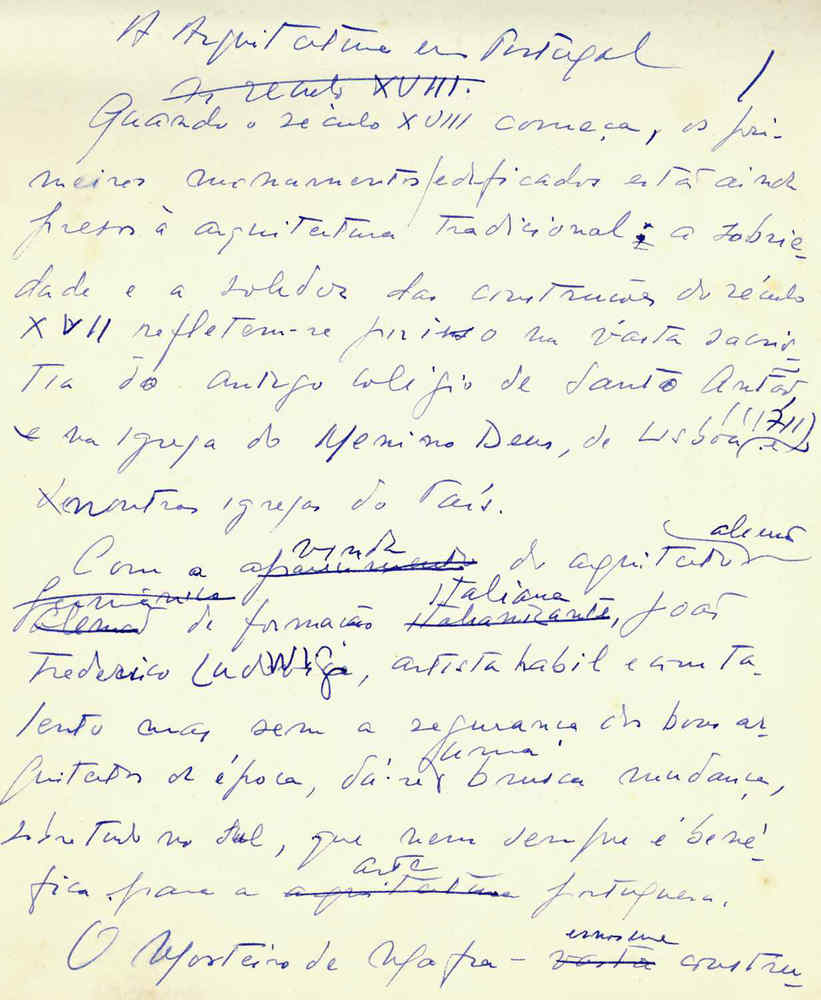 A Arquitectura em Portugal
No século XVIII.
1
Quando o século XVIII começa, os pri-
meiros monumentos edificados está ainda
presos à arquitectura tradicional; a sobrie-
dade e a solidez das construções do século
XVII refletem-se por isso na vasta sacris-
tia do antigo colégio de Santo Antão
e na igreja do Menino Deus, de Lisboa (1711)
e noutras igrejas do País.
Com a vinda do arquitecto alemão
germânico
alemão de formação italianizante, italiana João
Frederico Ludwig, artista habil e com ta-
lento mas sem a segurança dos bons ar-
quitectos da época, dá-se uma brusca mudança,
sobretudo no Sul, que nem sempre é bené-
fica para a arquitectura arte portuguesa.
O Mosteiro de Mafra - vasta enorme constru-